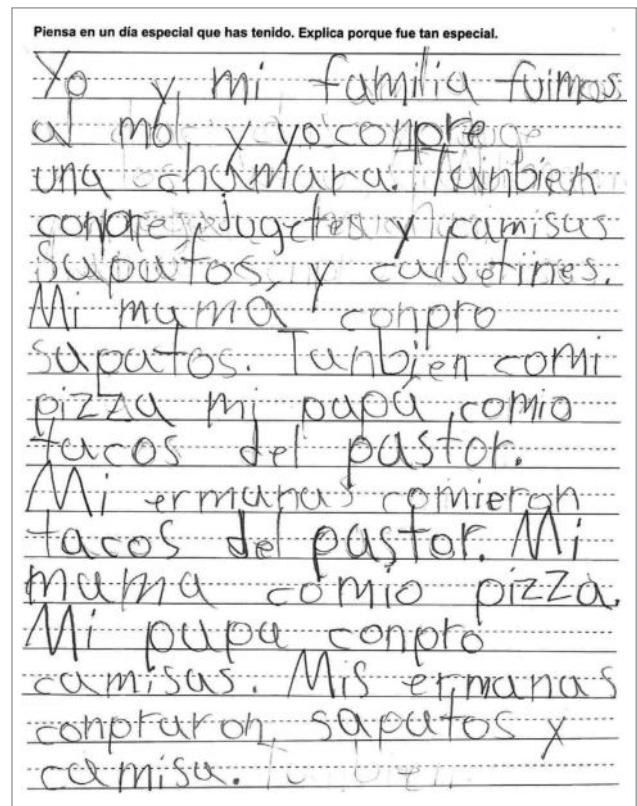 Piensa en un día especial que has tenido. Explica porque fue tan especial.
Yo y mi familia fuimos
al mol y yo conpre
una chamara. Tanbien
conpre jugetes y camisas
Sapatos y calsetines.
Mi mamá conpro
sapatos. Tanbien comi
pizza mi papá comio
tacos del pastor.
Mi ermanas comieron
tacos del pastor. Mi
mama comio pizza.
Mi papa conpro
camisas. Mis ermanas
conpraron sapatos y
camisa.